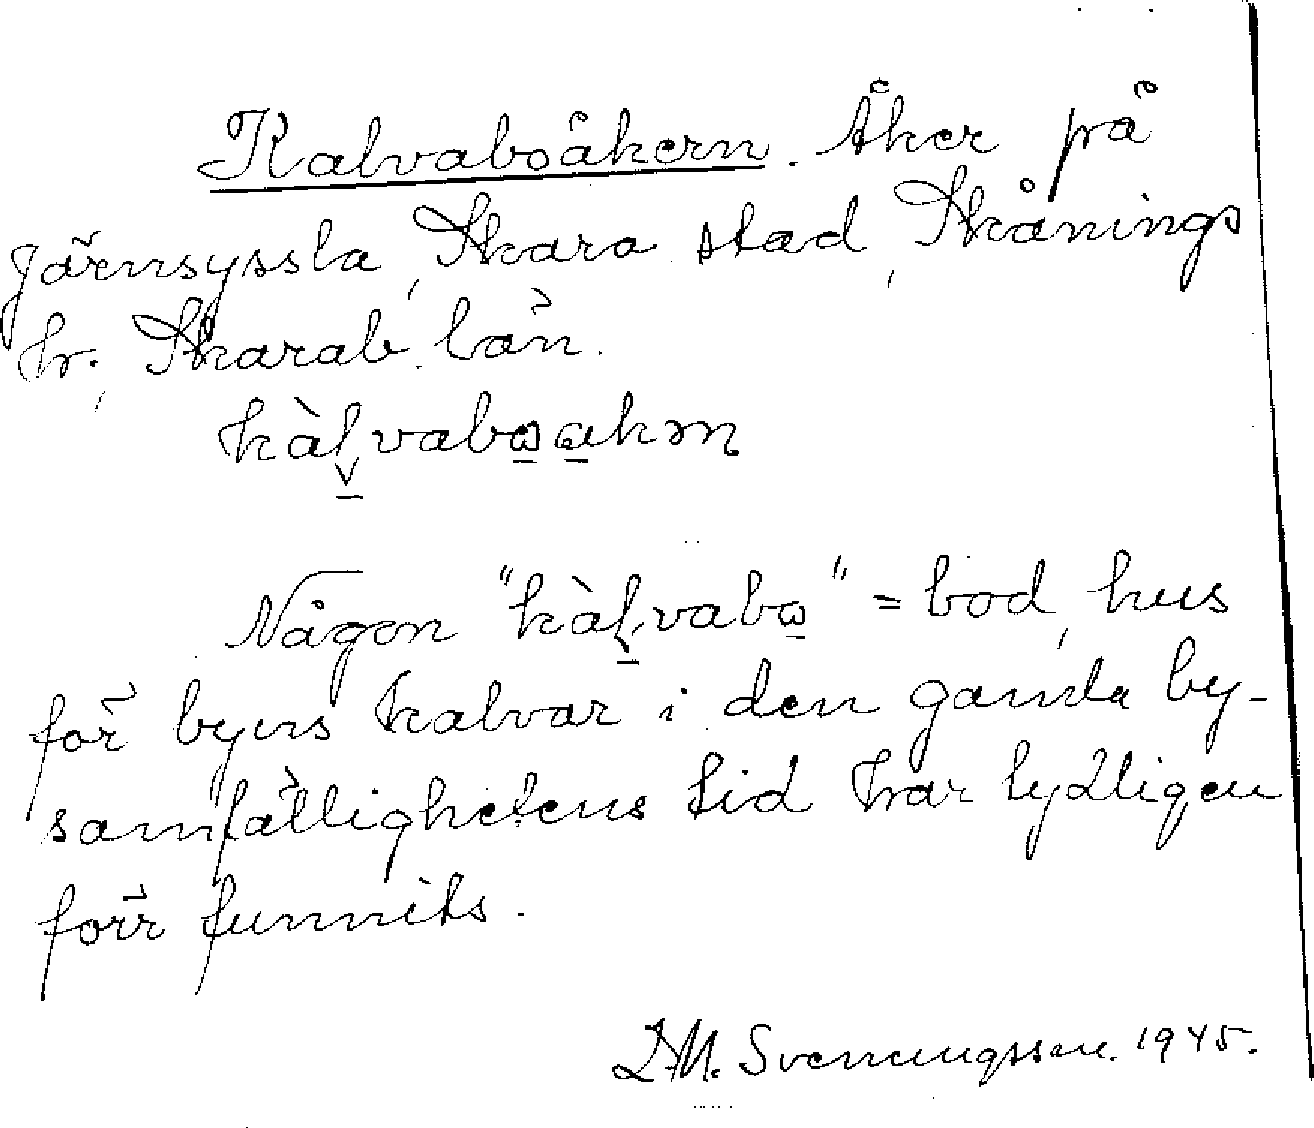 Kalvaboåkern. Åker på
Järnsyssla, Skara stad, Skånings
hr, Skarab. län.
kàḷvabɷɑkən
Någon "kàḷvabɷ" = bod, hus
för byns kalvar i den gamla by-
samfällighetens tid har tydligen
förr funnits.
Svenningsson. 1945.